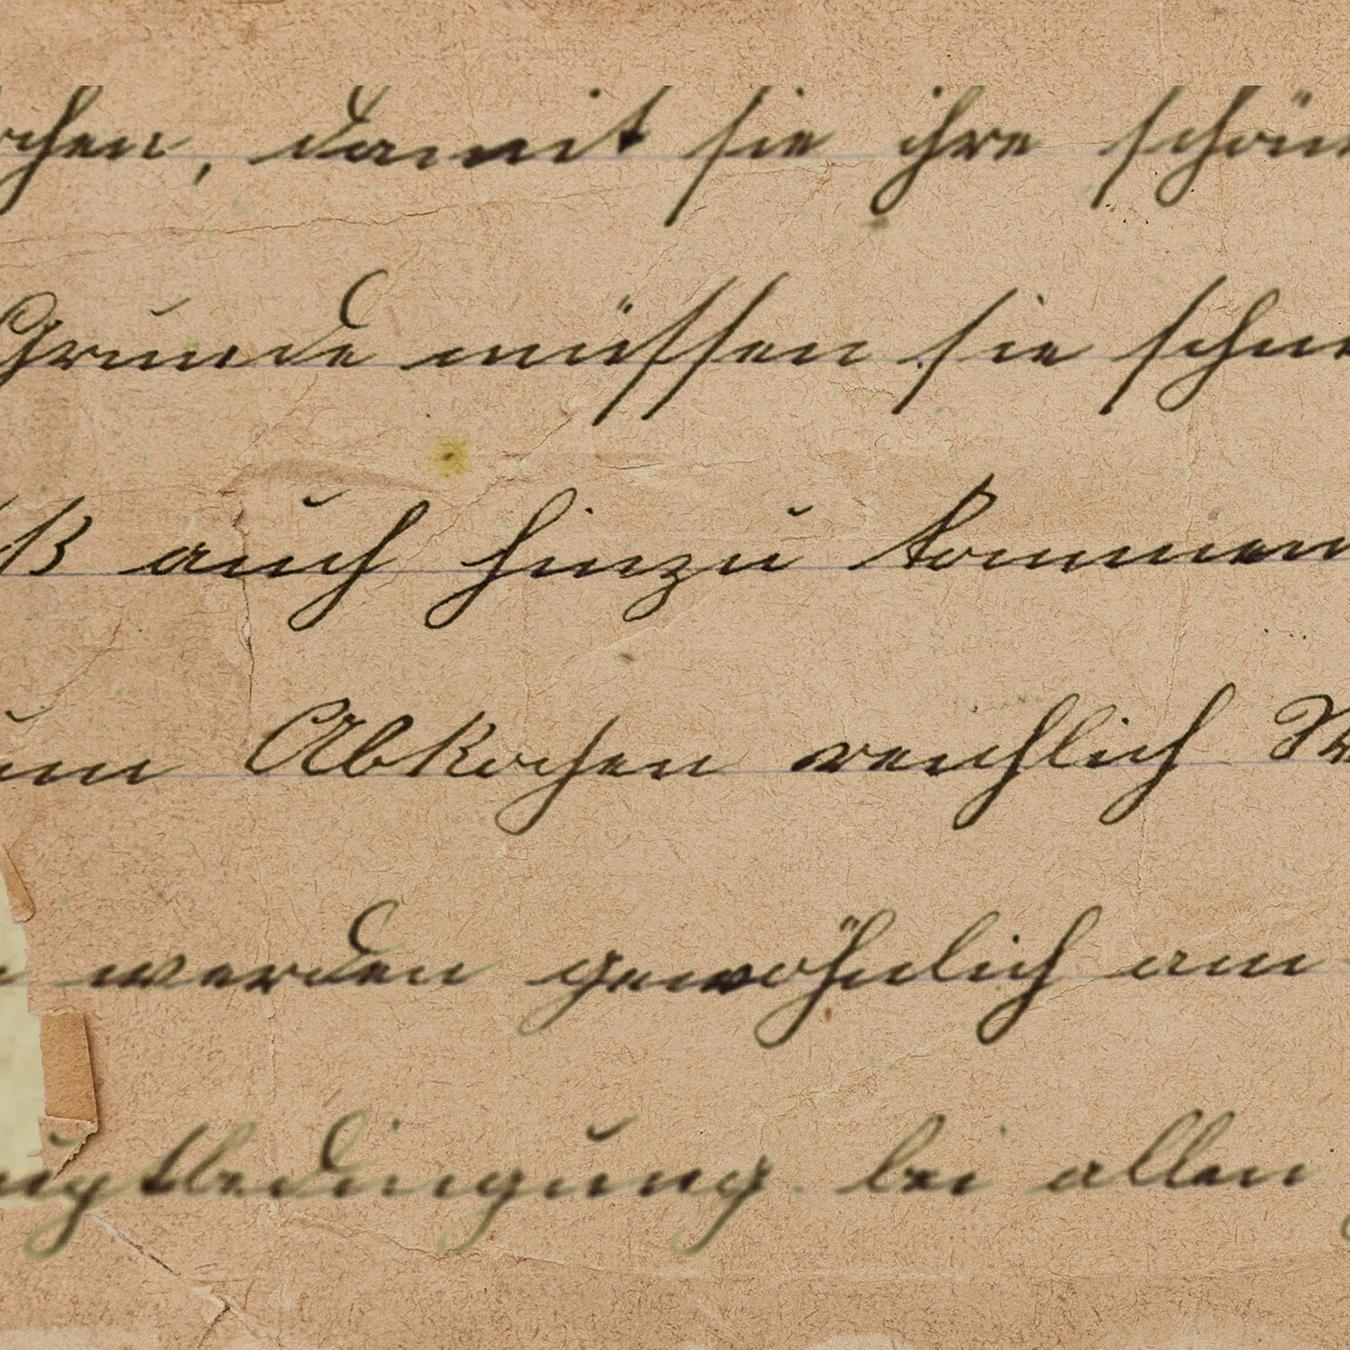 ochen, damit sie ihre schön
Grunde müssen sie schne
ß auch hinzu kommen
um Abkochen reichlich W
n werden gewöhnlich am
uptbedingung bei allen